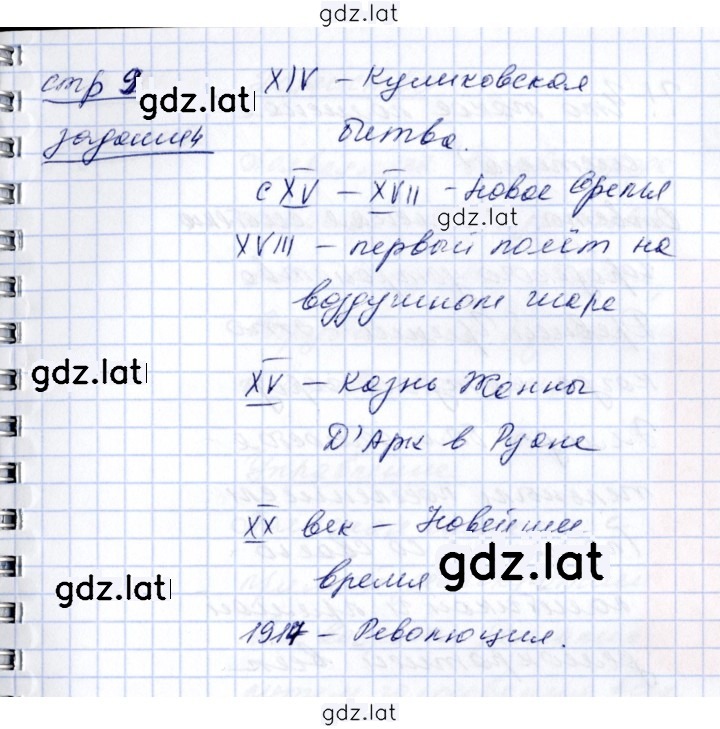 gdz.lat
стр 9 XIV – Куликовская
gdz.lat
задания 4 битва.
с XV – XVII - Новое время
gdz.lat
XVIII – первый полёт на
воздушном шаре
gdz.lat
XV – Казнь Жанны
Д'Арк в Руане
XX век – Новейшее
gdz.lat
время
gdz.lat
1917 – Революция.
gdz.lat